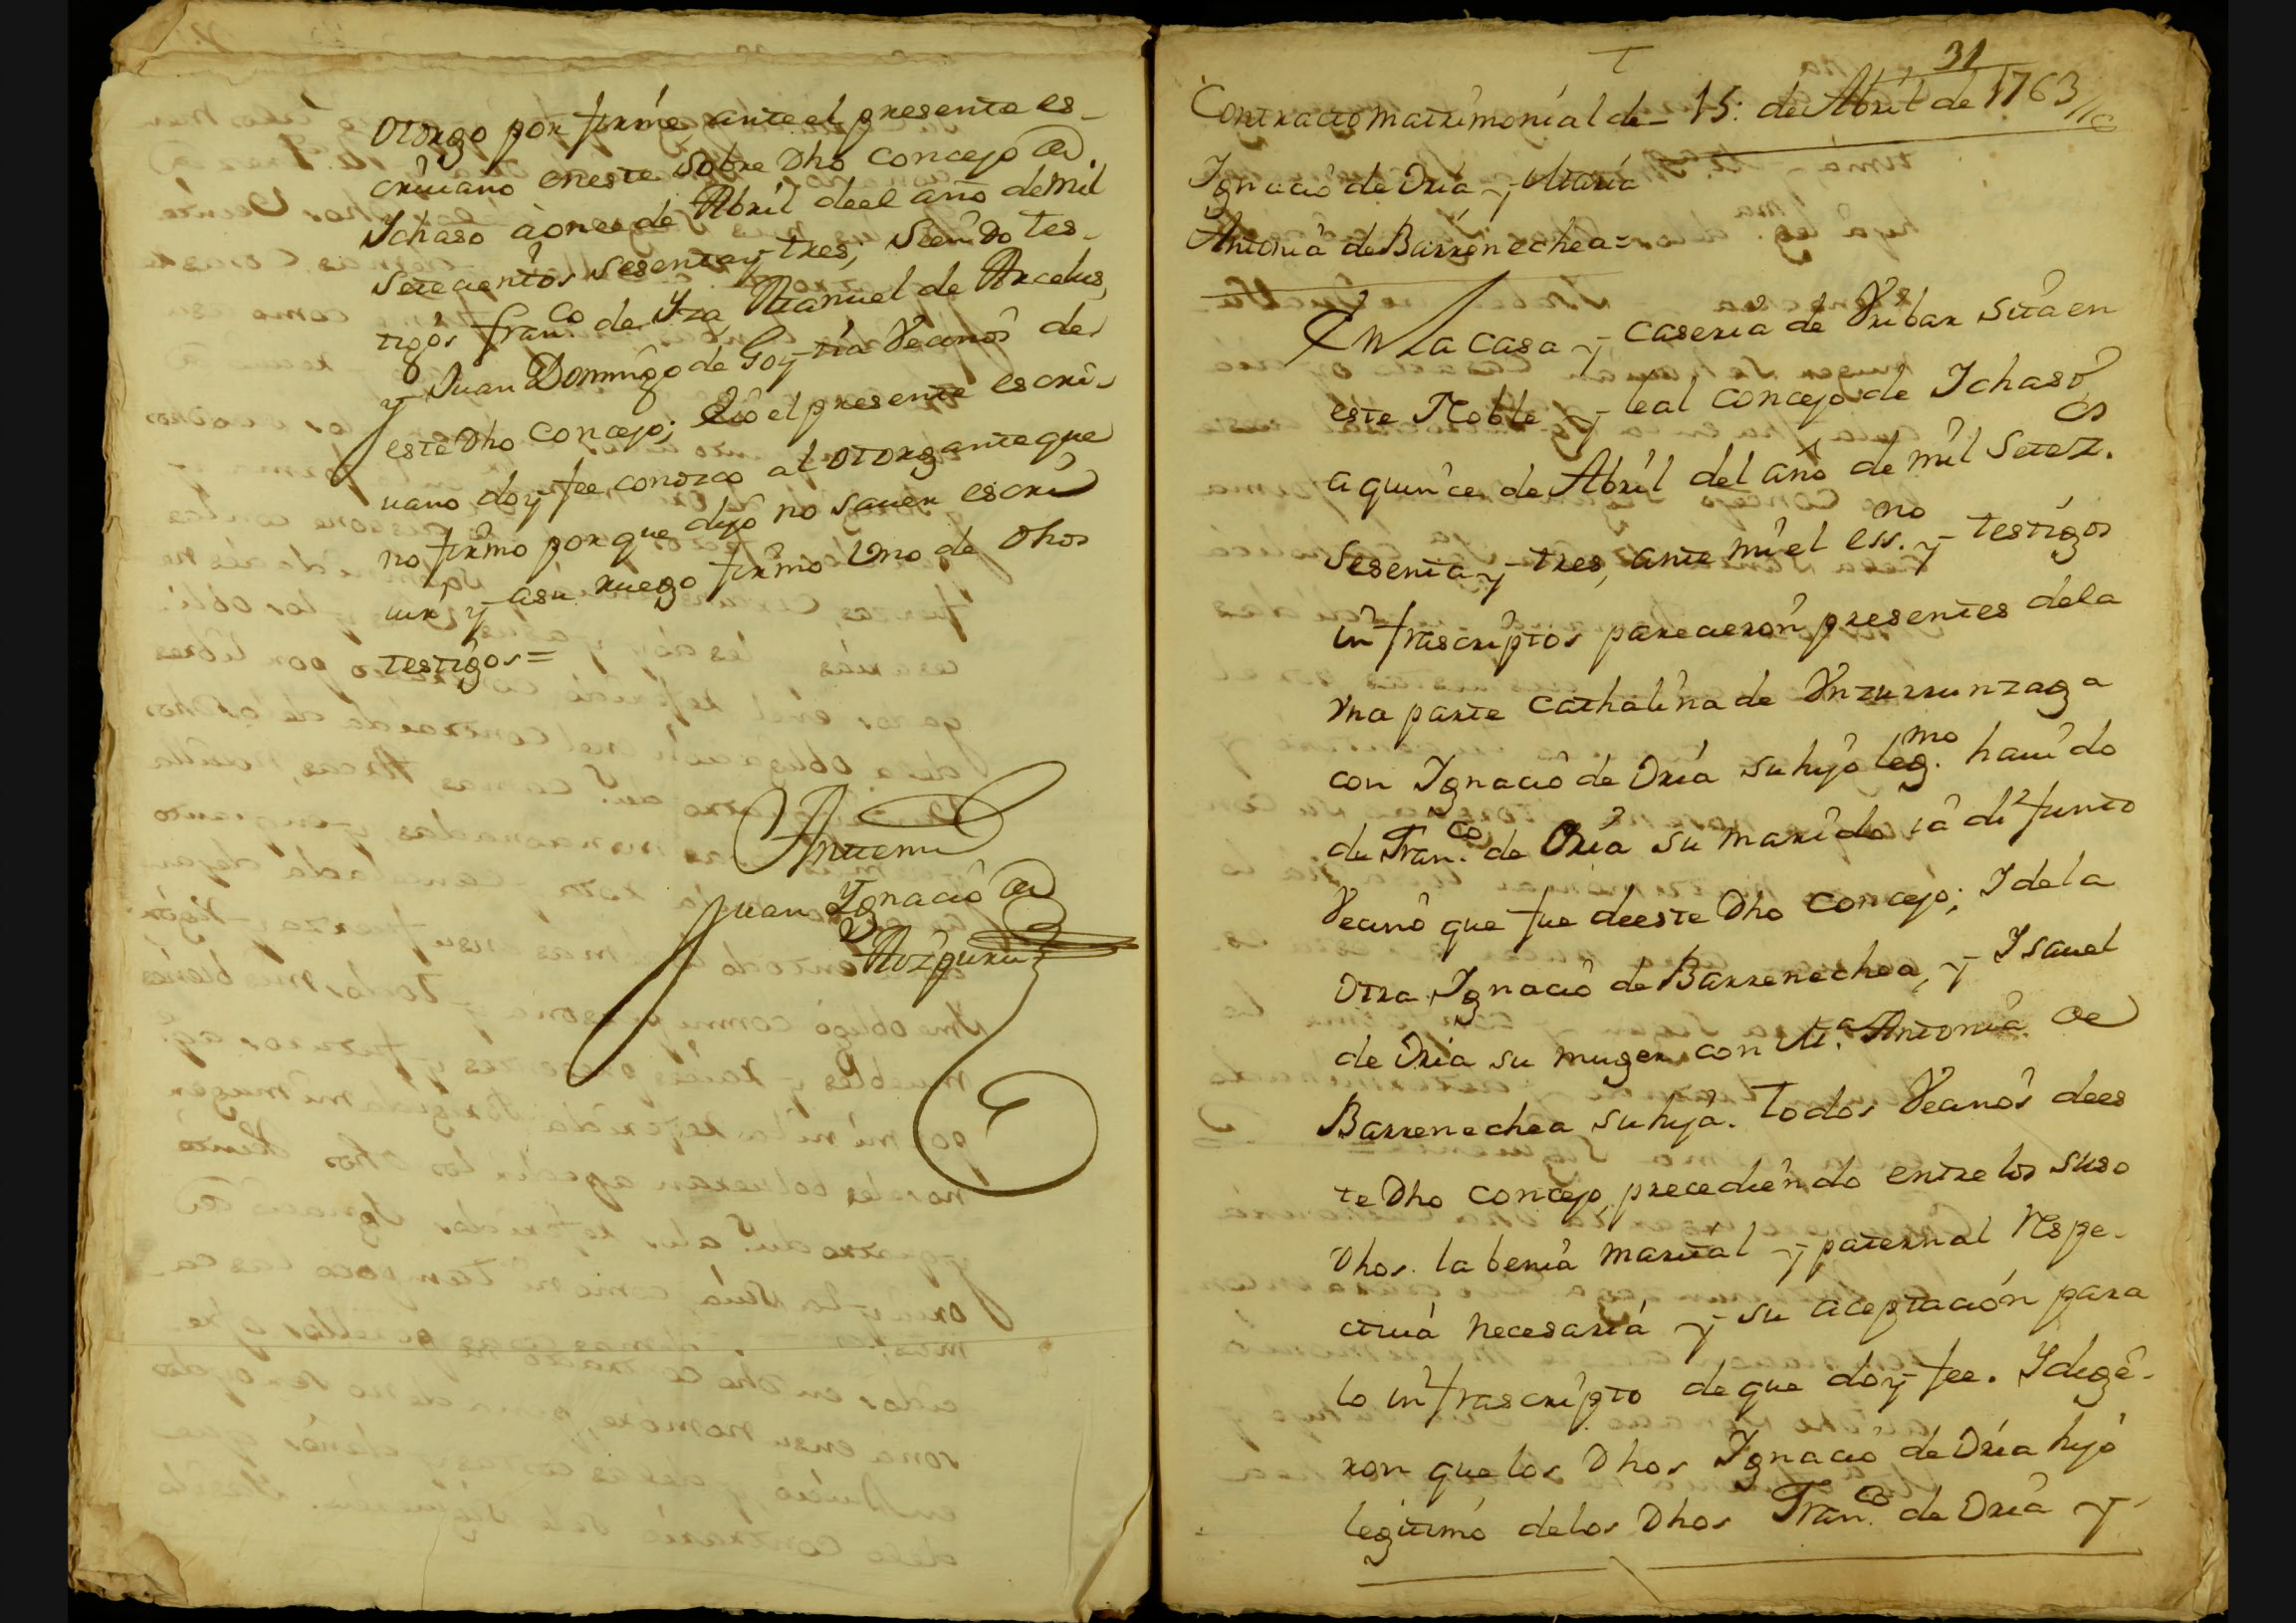 otorgo por firme ante el presente es-
criuano en este sobre dho Concejo de
Ichaso à onze de Abril de el año de mil
setecientos sesenta y tres, siendo tes-
tigos Fran.co de Yza, Manuel de Arcelus,
y Juan Domingo de Goytia Vecinos de
este dho Concejo; è Io el presente escri-
uano doy fee conozco al otorgante que
no firmo por que dijo no sauer escri
uir y a su ruego firmo Uno de dhos
testigos =
Ante mi
Juan Ignacio de
Aozpuru
31
Contracto matrimonial de 15. de Abril de 1763
Ignacio de Oria y Maria
Antonia de Barrenechea =
En La Casa y Caseria de Vribar sita en
este Noble y leal Concejo de Ichaso
a quince de Abril del año de mil Setez.os
Sesenta y tres, ante mi el ess.no y testigos
infrascriptos parecieron presentes de la
vna parte Cathalina de Vnzurrunzaga
con Ignacio de Oria su hijo leg.mo hauido
de Fran.co de Oria su marido ia difunto
Vecino que fue de este dho Concejo; I de la
otra Ignacio de Barrenechea, y Isauel
de Oria su muger con M.a Antonia de
Barrenechea su hija. todos Vecinos de es
te dho Concejo, precediendo entre los suso
dhos. la benia marital y paternal respe-
ctiua necesaria y su aceptacion para
lo infrascripto de que doy fee. I dige-
ron que los dhos Ignacio de Oria hijo
legitimo de los dhos Fran.co de Oria y